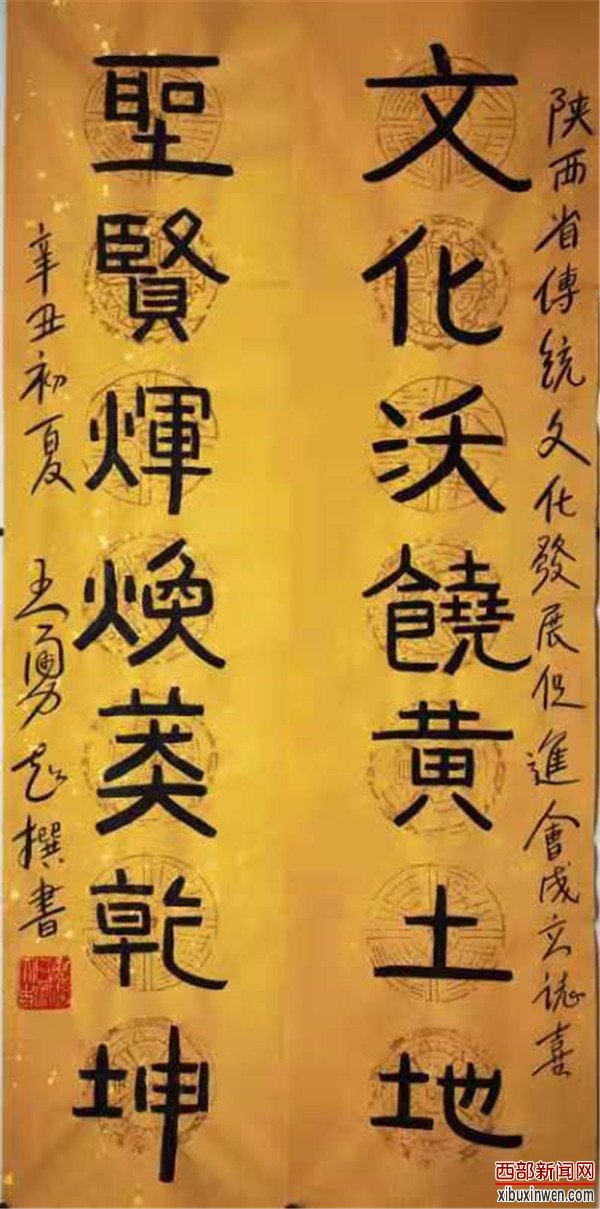 陕西省傳統文化發展促進會成立誌喜
文化沃饒黄土地
聖賢煇煥美乾坤
辛丑初夏 王勇超撰書
西部新闻网
xibuxinwen.com